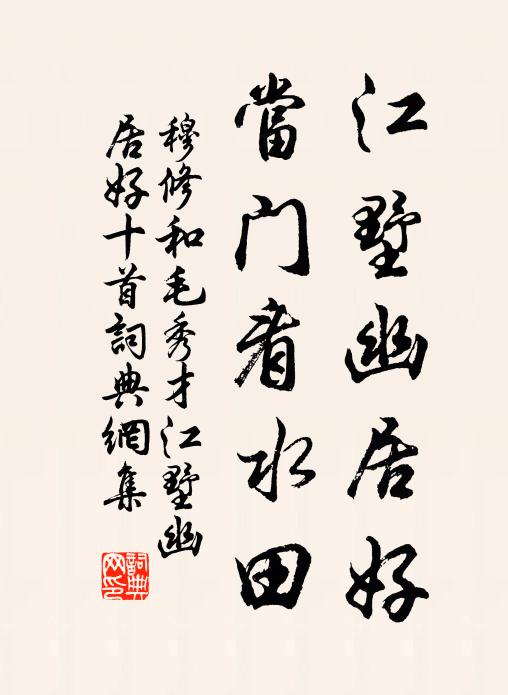 江墅幽居好
當門看水田
穆修和毛秀才江墅幽
居好十首詞典網集
詞典网印